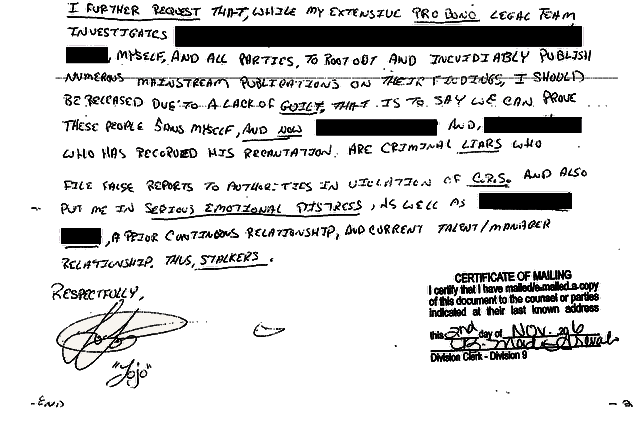 I FURTHER REQUEST THAT, WHILE MY EXTENSIVE PRO BONO LEGAL TEAM
INVESTIGATES
, MYSELF, AND ALL PARTIES, TO ROOT OUT AND INCVIDIABLY PUBLISH
NUMEROUS MAINSTREAM PUBLICATIONS ON THEIR FINDINGS, I SHOULD
BE RELEASED DUE TO A LACK OF GUILT, THAT IS TO SAY WE CAN PROVE
THESE PEOPLE SANS MYSELF, AND NOW AND,
WHO HAS RECORDED HIS RECANTATION, ARE CRIMINAL LIARS WHO
FILE FALSE REPORTS TO AUTHORITIES IN VIOLATION OF C.R.S. AND ALSO
PUT ME IN SERIOUS EMOTIONAL DISTRESS, AS WELL AS
, A PRIOR CONTINUOUS RELATIONSHIP, AND CURRENT TALENT/MANAGER
RELATIONSHIP. THUS, STALKERS.
RESPECTFULLY,
"Yojo"
CERTIFICATE OF MAILING
I certify that I have mailed/e-mailed a copy
of this document to the counsel or parties
indicated at their last known address
this 2nd day of NOV. 2016
Division Clerk - Division 9
-END